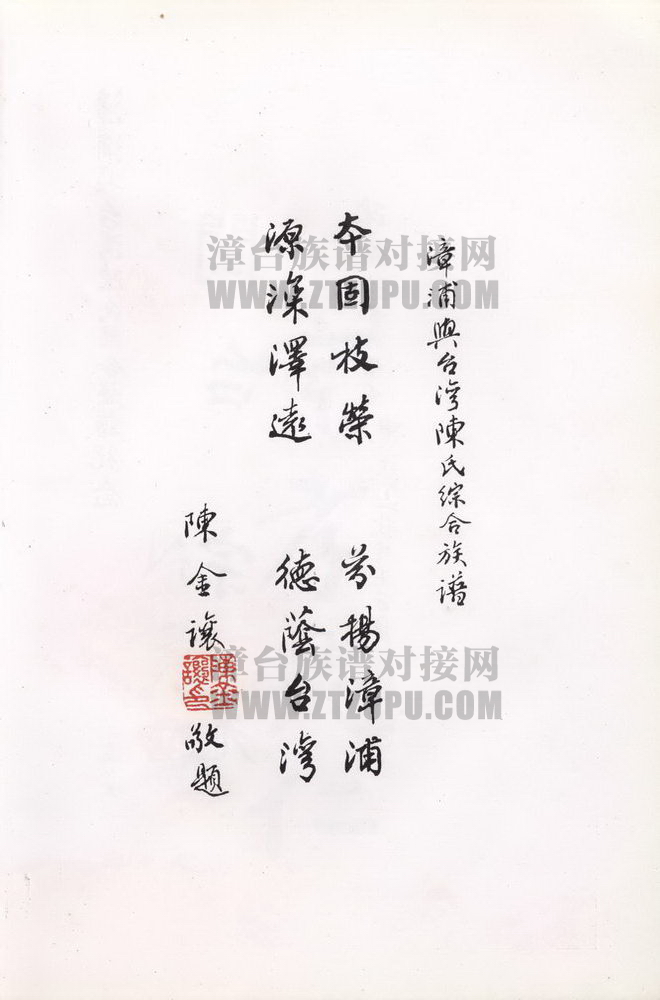 漳浦與台灣陳氏綜合族譜
本固枝榮 芬揚漳浦
源深澤遠 德蔭台灣
陳金讓 敬題
漳台族谱对接网
WWW.ZTZUPU.COM
漳台族谱对接网
WWW.ZTZUPU.COM